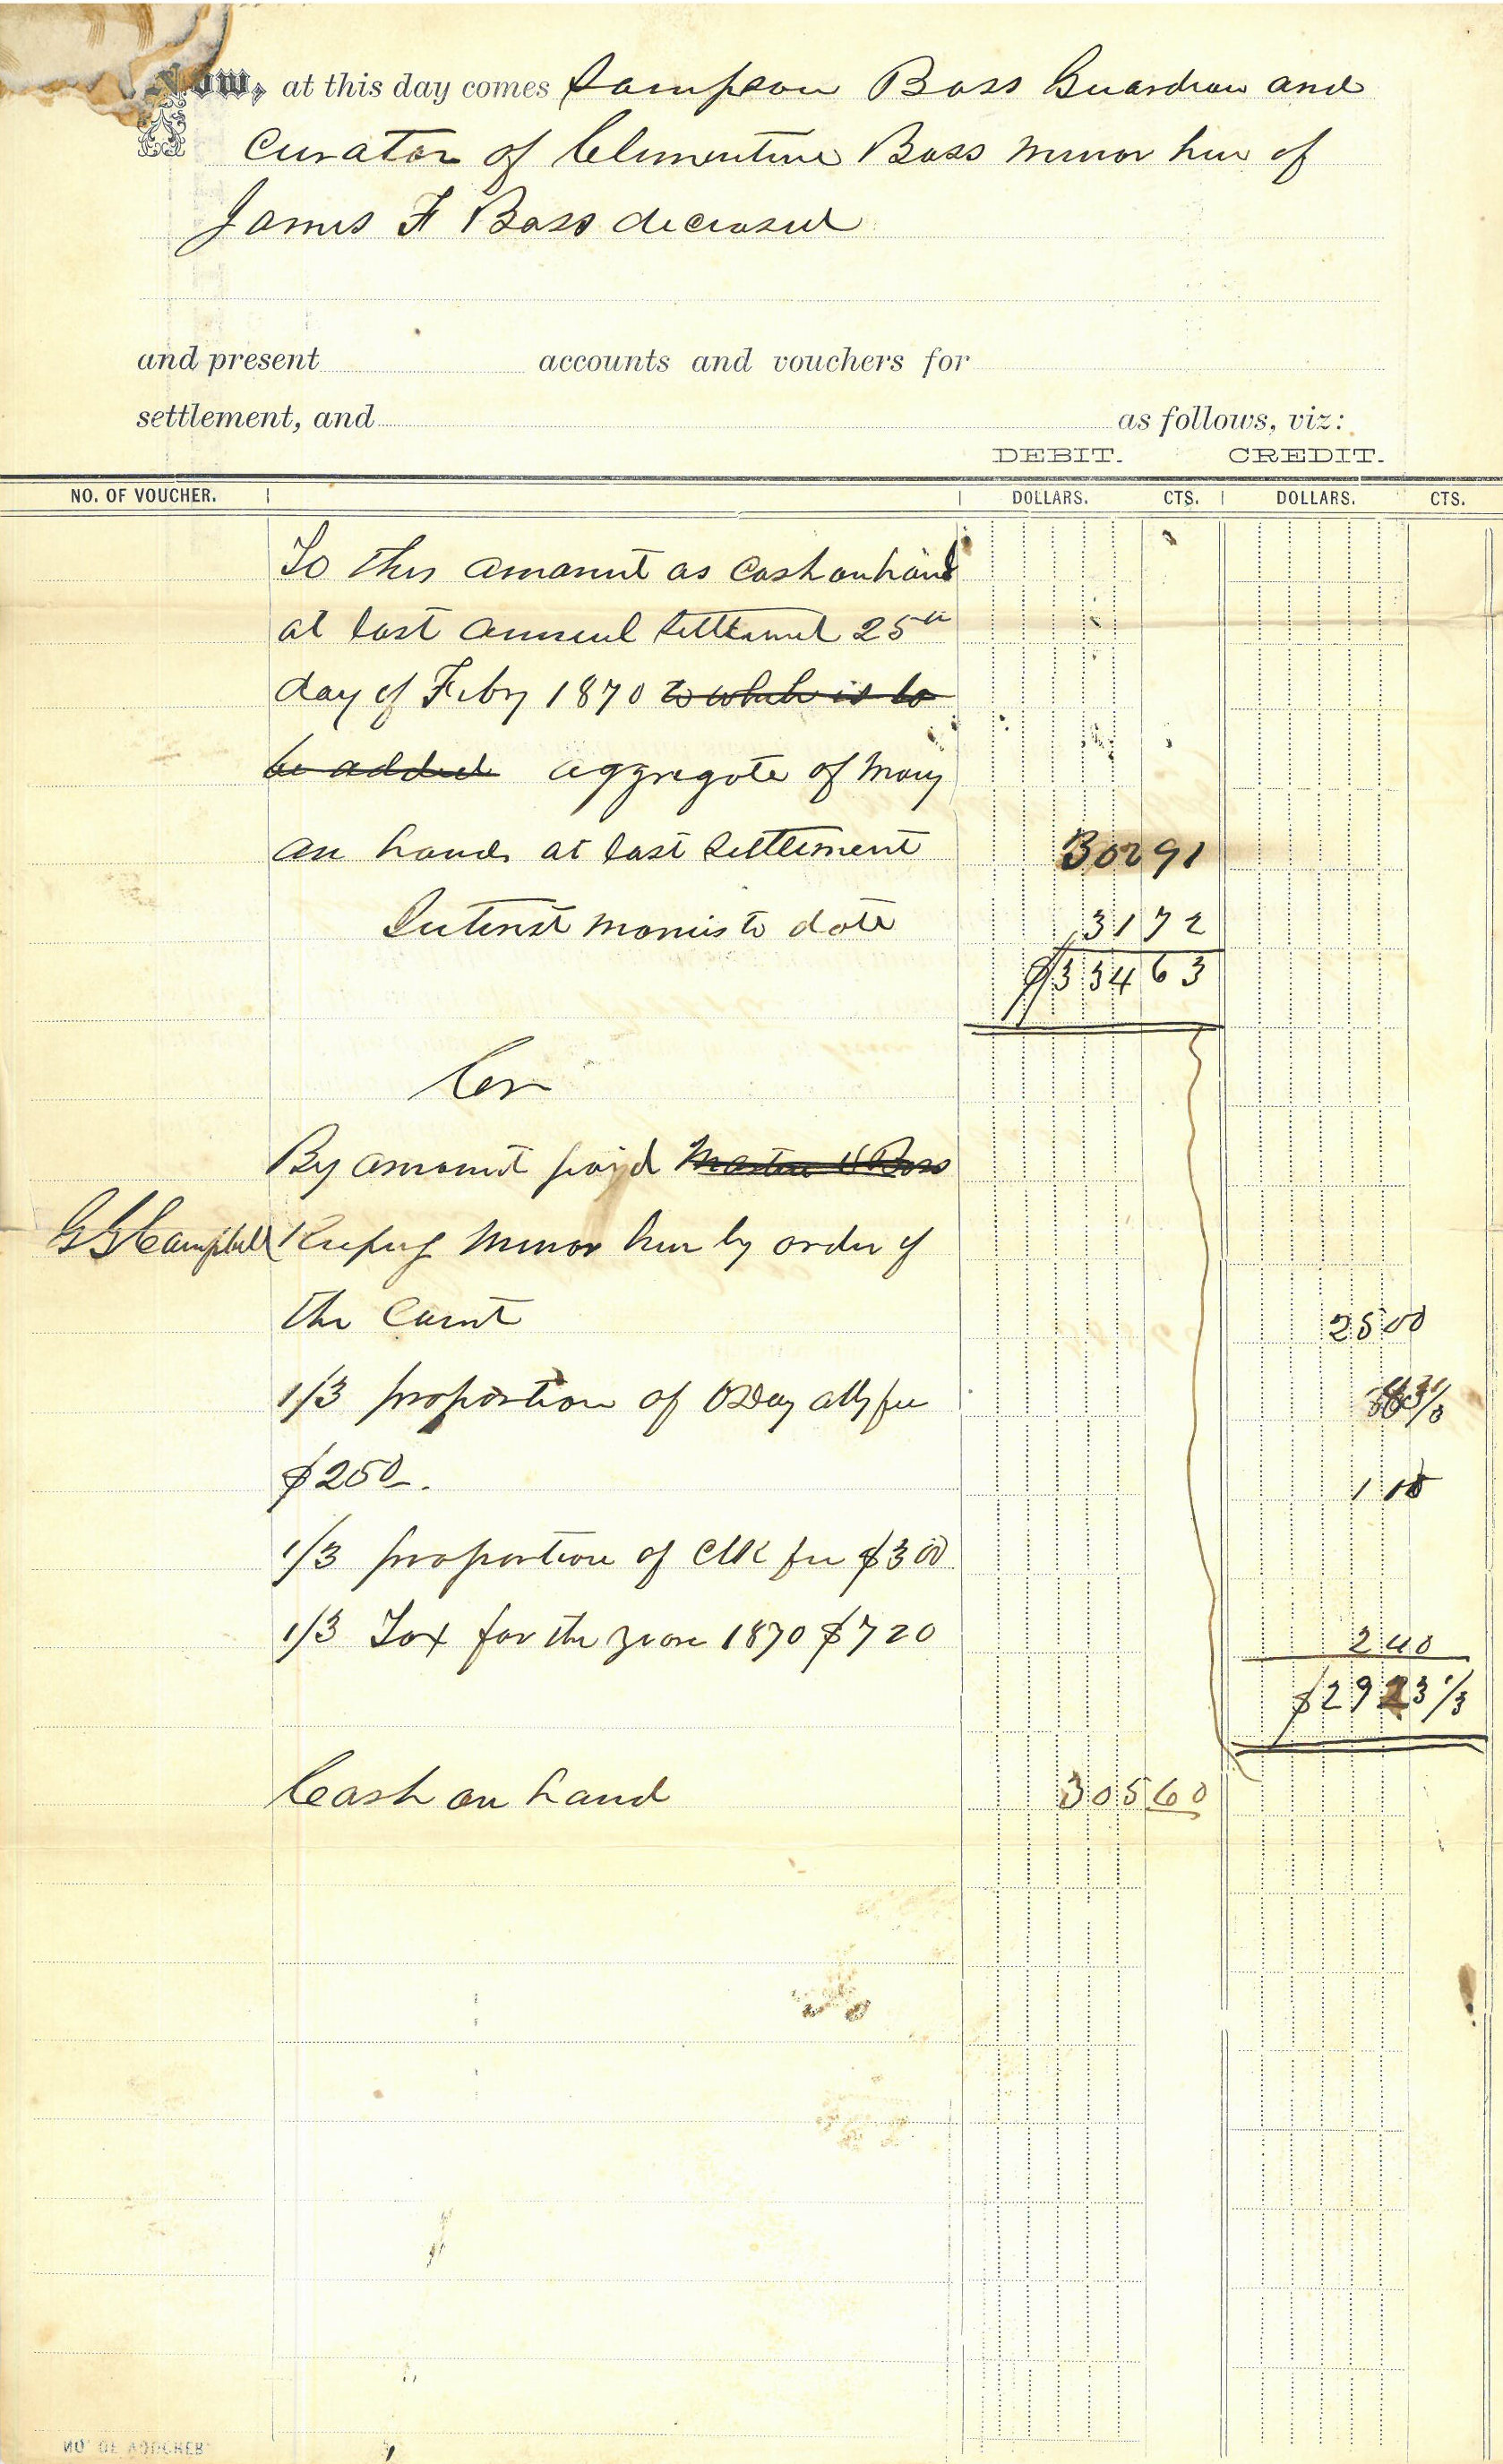 Now, at this day comes Sampson Bass Guardian and
Curator of Clementine Bass minor heir of
James F Bass deceased
and present accounts and vouchers for
settlement, and as follows, viz:
DEBIT. CREDIT.
NO. OF VOUCHER. DOLLARS. CTS. DOLLARS. CTS.
To this amount as Cash on hand
at last annual Settlement 25th
day of Feby 1870 to which is to
be added aggregate of Mony
on hand at last Settlement 302 91
Interest monies to date 31 72
$334 63
Cr
By amount paid
G G Campbell Keeping minor heir by order of
the Court 25 00
1/3 proportion of ODay atty fee 83 1/3
$250. 1 00
1/3 proportion of Clk fee $3 00
1/3 Tax for the year 1870 $7 20 2 40
$29 23 1/3
Cash on hand 305 60
NO. OF VOUCHER